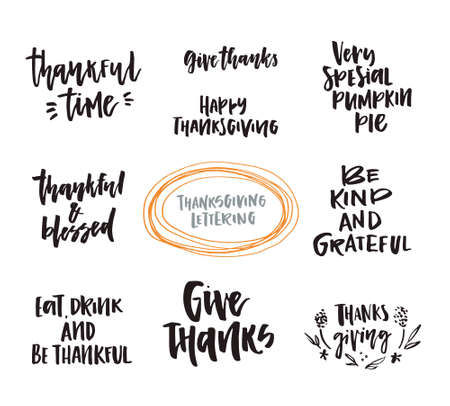 thankful
time
Give thanks
Happy
Thanksgiving
Very
spesial
pumpkin
pie
thankful
&
blessed
Thanksgiving
lettering
Be
kind
and
grateful
Eat, drink
and
be thankful
Give
thanks
Thanks
giving